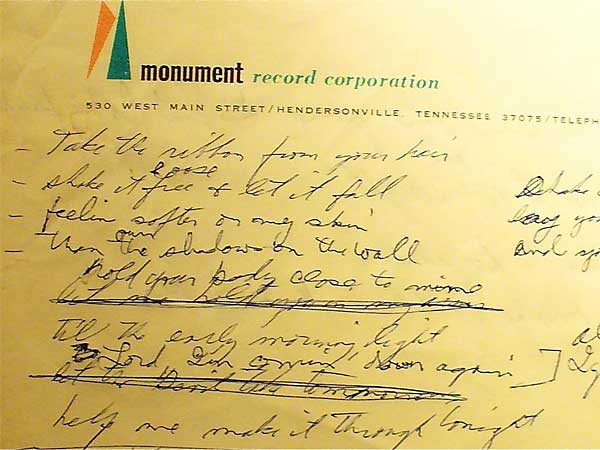 monument record corporation
530 WEST MAIN STREET/HENDERSONVILLE, TENNESSEE 37075/TELEPH
- Take the ribbon from your hair
loose
- shake it free & let it fall shake
- feelin softer on my skin lay you
- Then the shadows on the wall and
hold your body close to mine
let me hold you in my arms
till the early morning light
Lord I'm comin' down again
let the Devil take tomorrow
help me make it through tonight